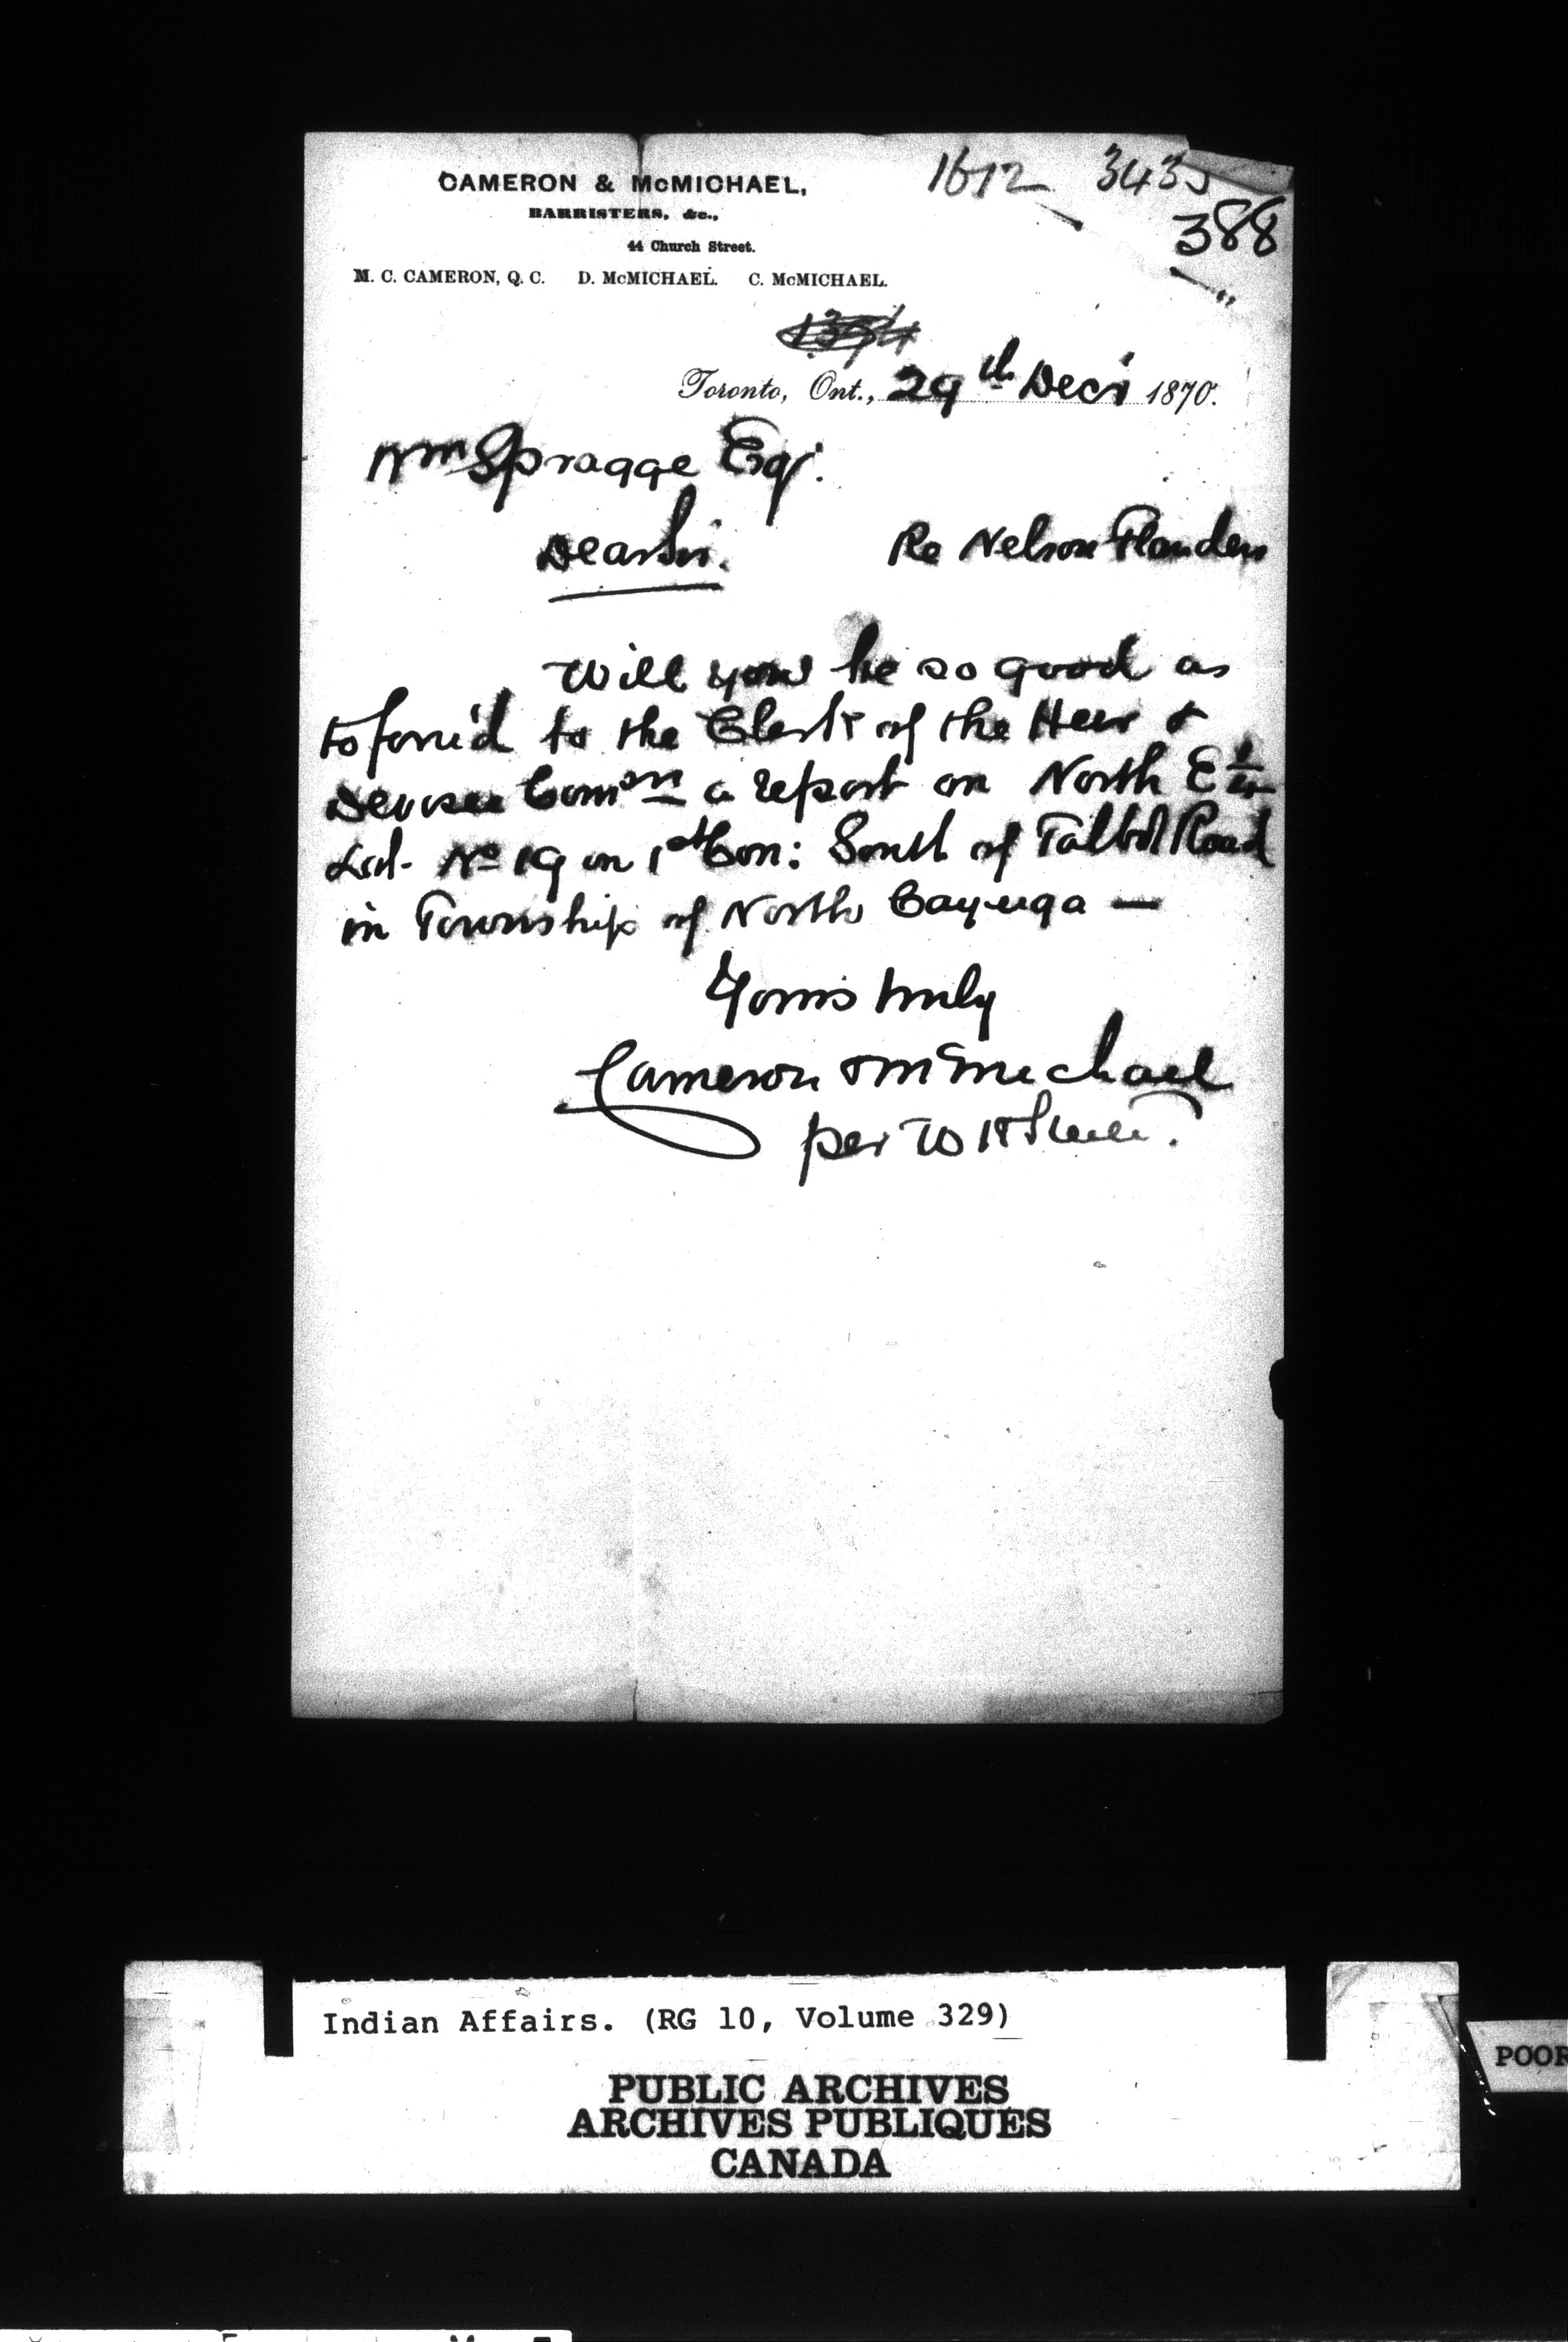 1612 3435
388
CAMERON & McMICHAEL,
BARRISTERS, &c.,
44 Church Street.
M. C. CAMERON, Q. C. D. McMICHAEL. C. McMICHAEL.
Toronto, Ont., 29th Decr 1870.
Wm Spragge Esq.
Dear Sir. Re Nelson Flanders
Will you be so good as
to forw'd to the Clerk of the Heir &
Devisee Comon a report on North E 1/4
Lot No 19 on 1st Con: South of Talbot Road
in Township of North Cayuga —
Yours truly
Cameron & McMichael
per W
Indian Affairs. (RG 10, Volume 329)
PUBLIC ARCHIVES
ARCHIVES PUBLIQUES
CANADA
POOR